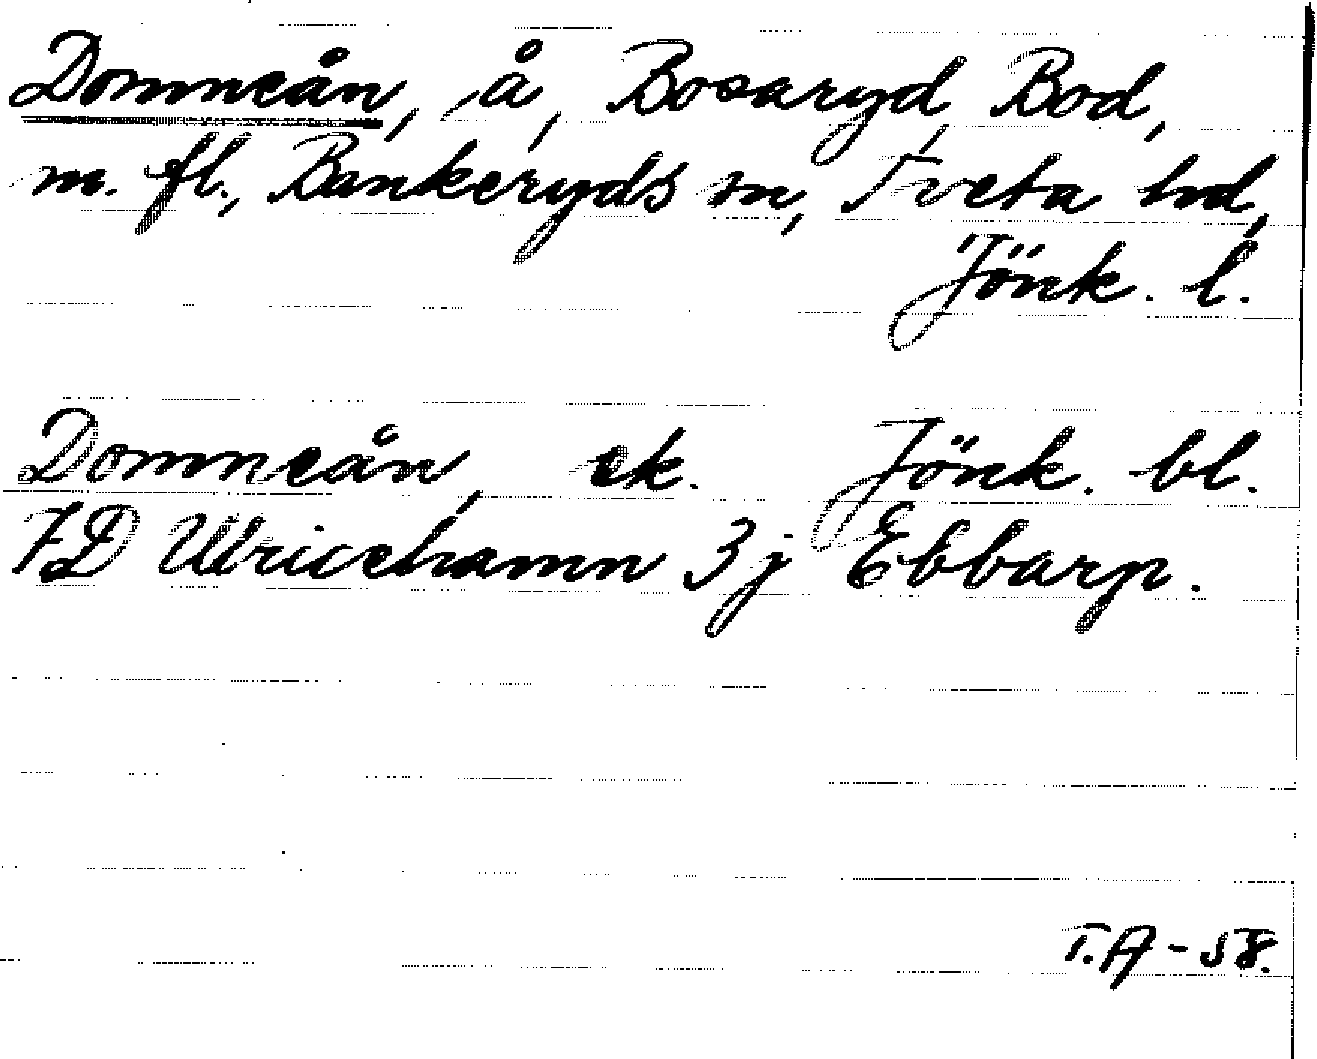 Domneån, å, Bosaryd, Bod,
m. fl., Bankeryds sn, Tveta hd,
Jönk. l.
Domneån, ek. Jönk. bl.
7D Ulricehamn 3j Ebbarp.
T.A - 58.